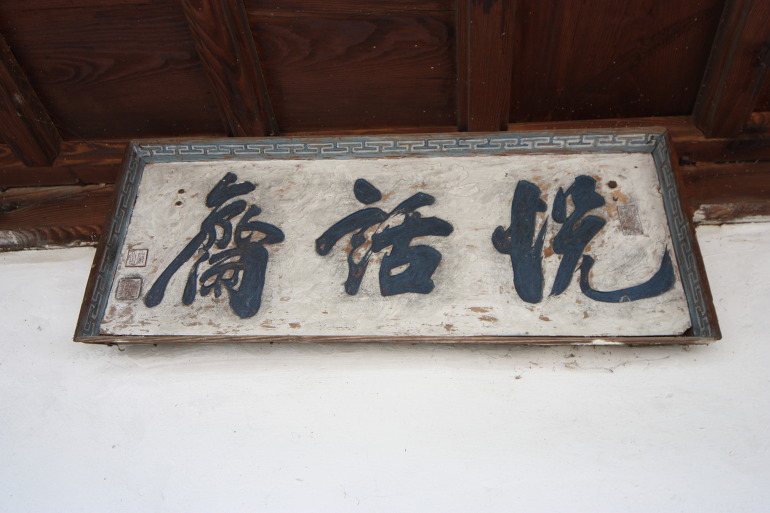 悅話齋